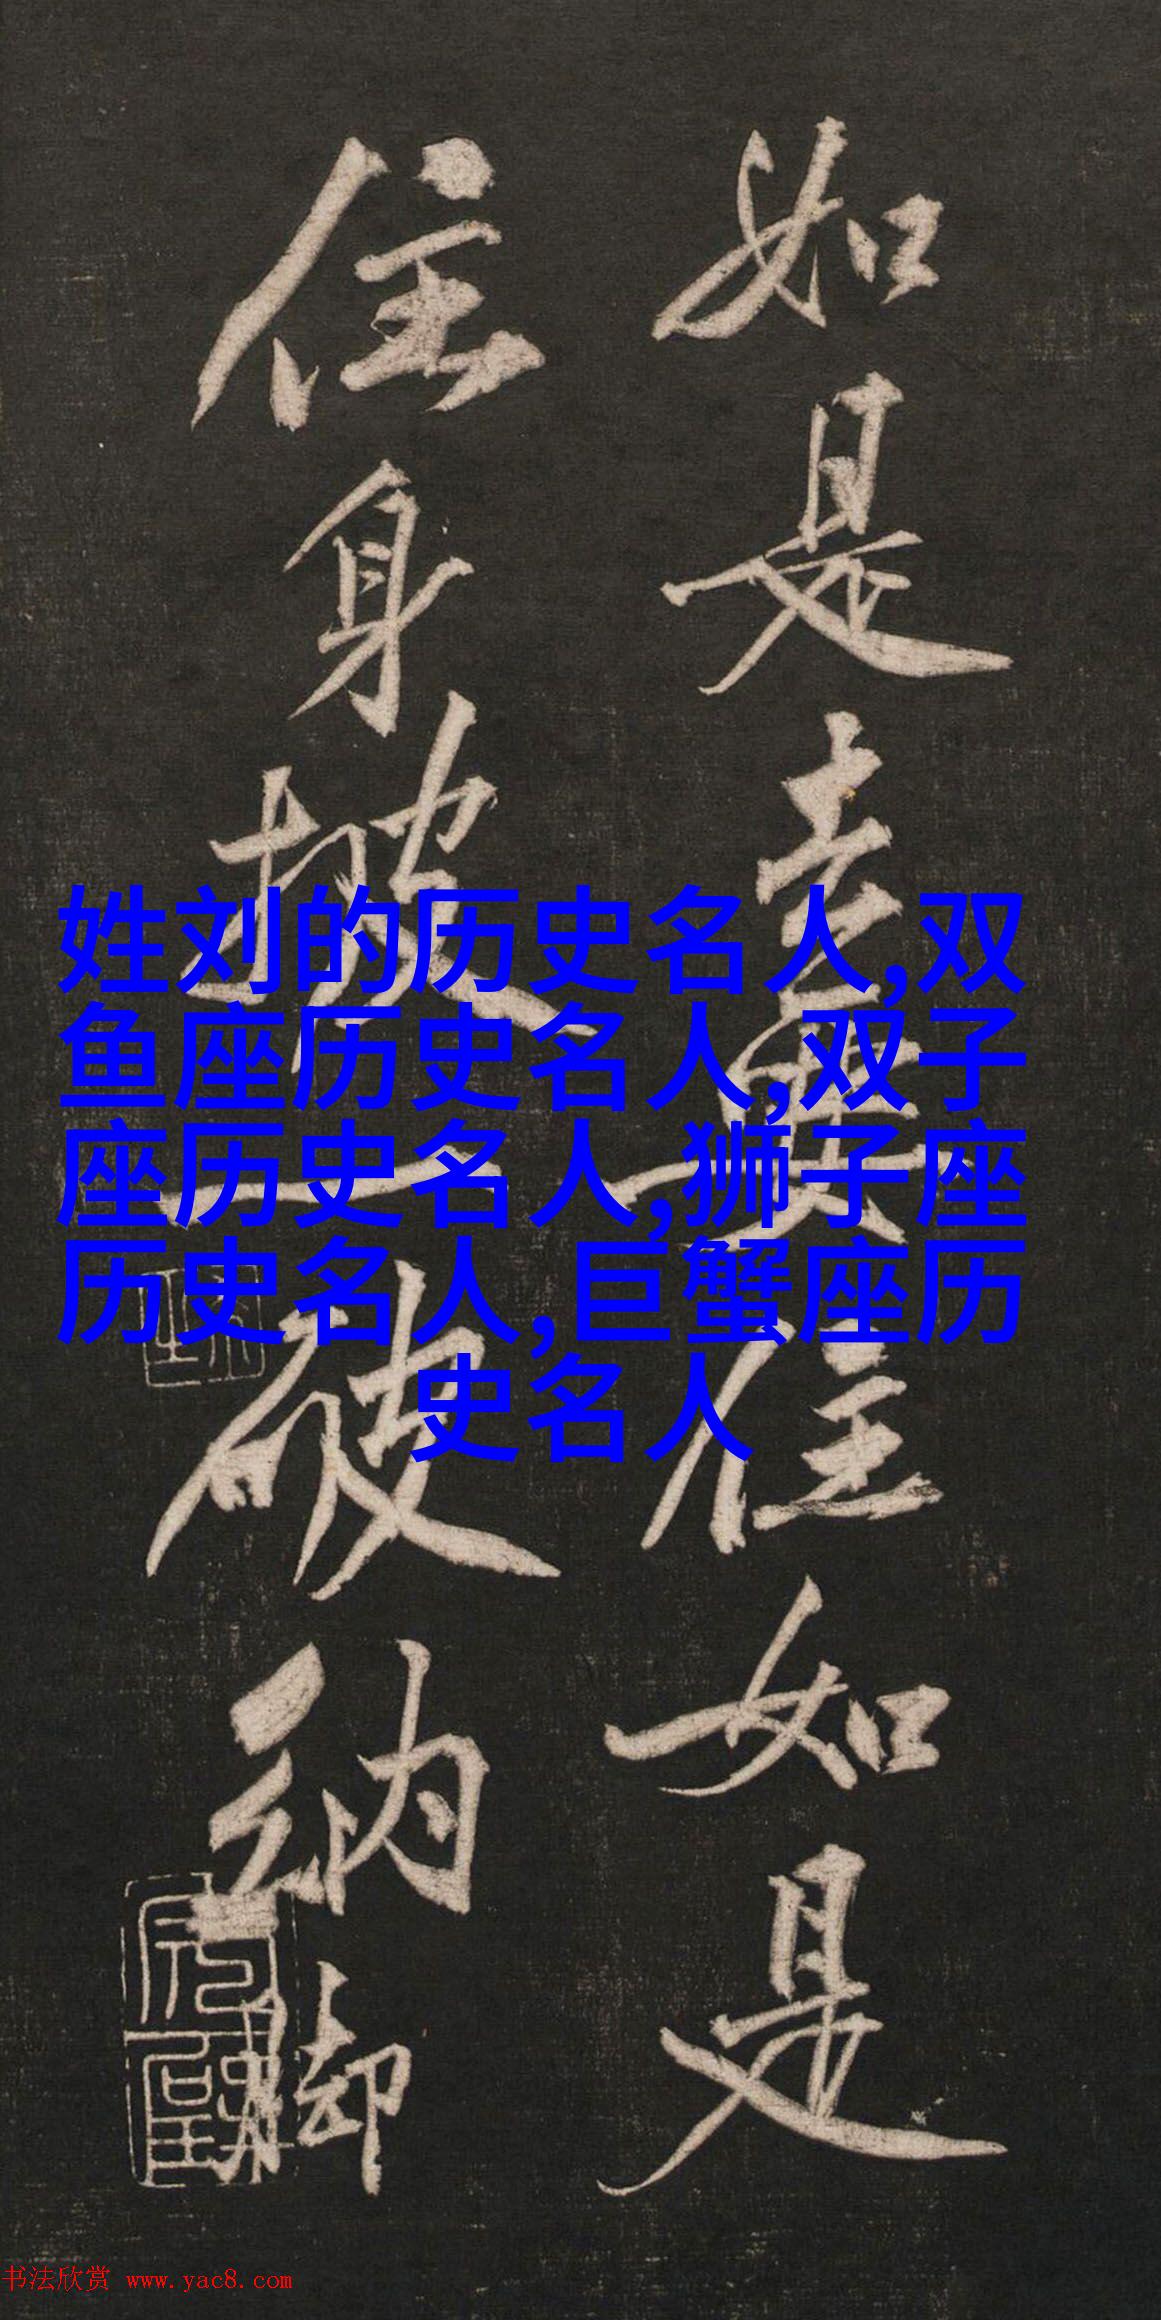 如是去来住如是
住身披一破衲脚
姓刘的历史名人,双
鱼座历史名人,双子
座历史名人,狮子座
历史名人,巨蟹座历
史名人
书法欣赏 www.yac8.com